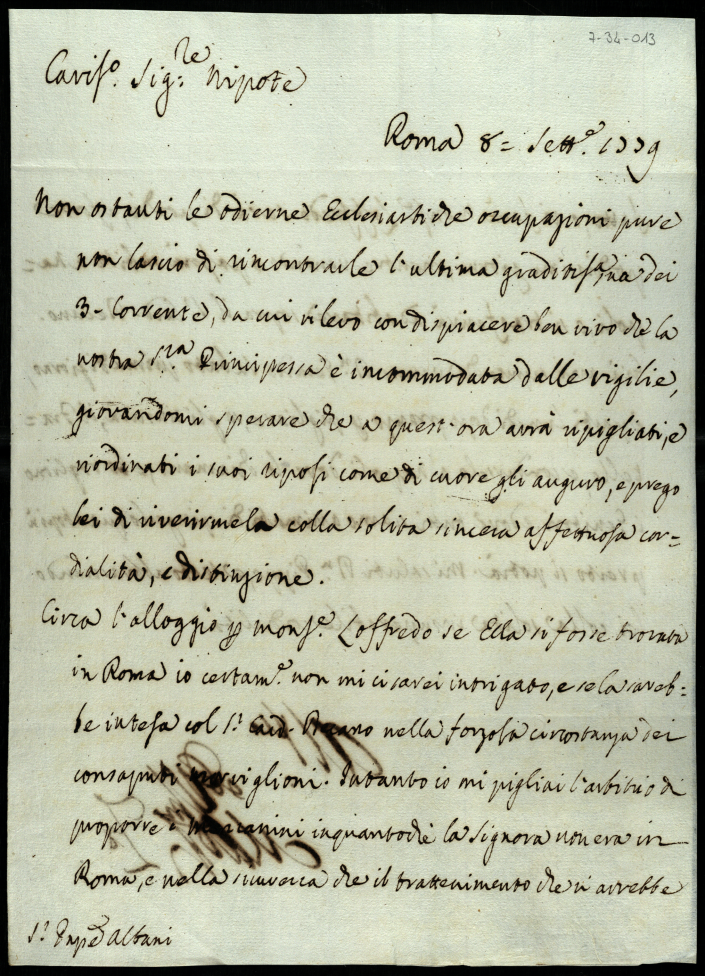 7-34-013
Cariss.o Sig.re Nipote
Roma 8= Sett.e 1779
Non ostanti le odierne Ecclesiastiche occupazioni pure
non lascio di rincontrarle l'ultima graditis.ma dei
3- Corrente, da cui rilevo con dispiacere ben vivo che la
nostra S.ra Principessa è incommodata dalle vigilie,
giovandomi sperare che a quest'ora avrà ripigliati, e
riordinati i suoi riposi come di cuore gli auguro, e prego
lei di riverirmela colla solita sincera affettuosa cor=
dialità, e distinzione.
Circa l'alloggio p Mons.e Loffredo se Ella si fosse trovata
in Roma io certam.e non mi ci sarei intrigato, e se la sareb=
be intesa col S.r Card. nella forzosa circostanza dei
consaputi Intanto io mi pigliai l'arbitrio di
proporre i inquantoche la Signora non era in
Roma, e nella sicurezza che il trattenimento che vi avrebbe
S.r Albani